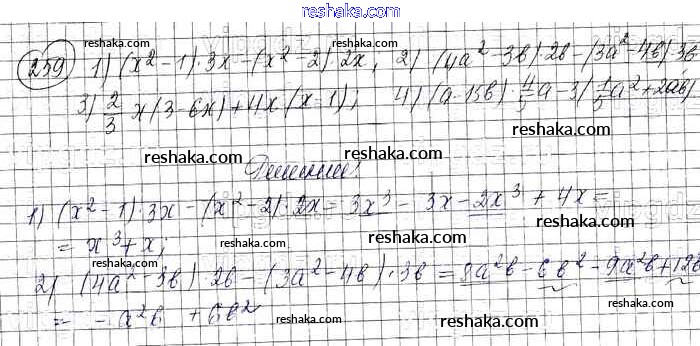 reshaka.com
259) 1) (x² - 1)·3x - (x² - 2)·2x; 2) (4a² - 3b)·2b - (3a² - 4b)·3b
3) 2/3 x(3 - 6x) + 4x(x - 1); 4) (a - 15b)·4/5 a - 3(1/5 a² + 2ab)
reshaka.com reshaka.com reshaka.com
Решение:
reshaka.com
1) (x² - 1)·3x - (x² - 2)·2x = 3x³ - 3x - 2x³ + 4x =
reshaka.com reshaka.com reshaka.com
= x³ + x;
2) (4a² - 3b)·2b - (3a² - 4b)·3b = 8a²b - 6b² - 9a²b + 12b
= -a²b + 6b²
reshaka.com reshaka.com reshaka.com
reshaka.com